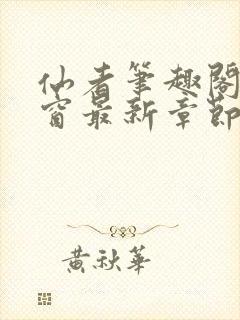 仙者筆趣閣
窗最新章節
黃秋華